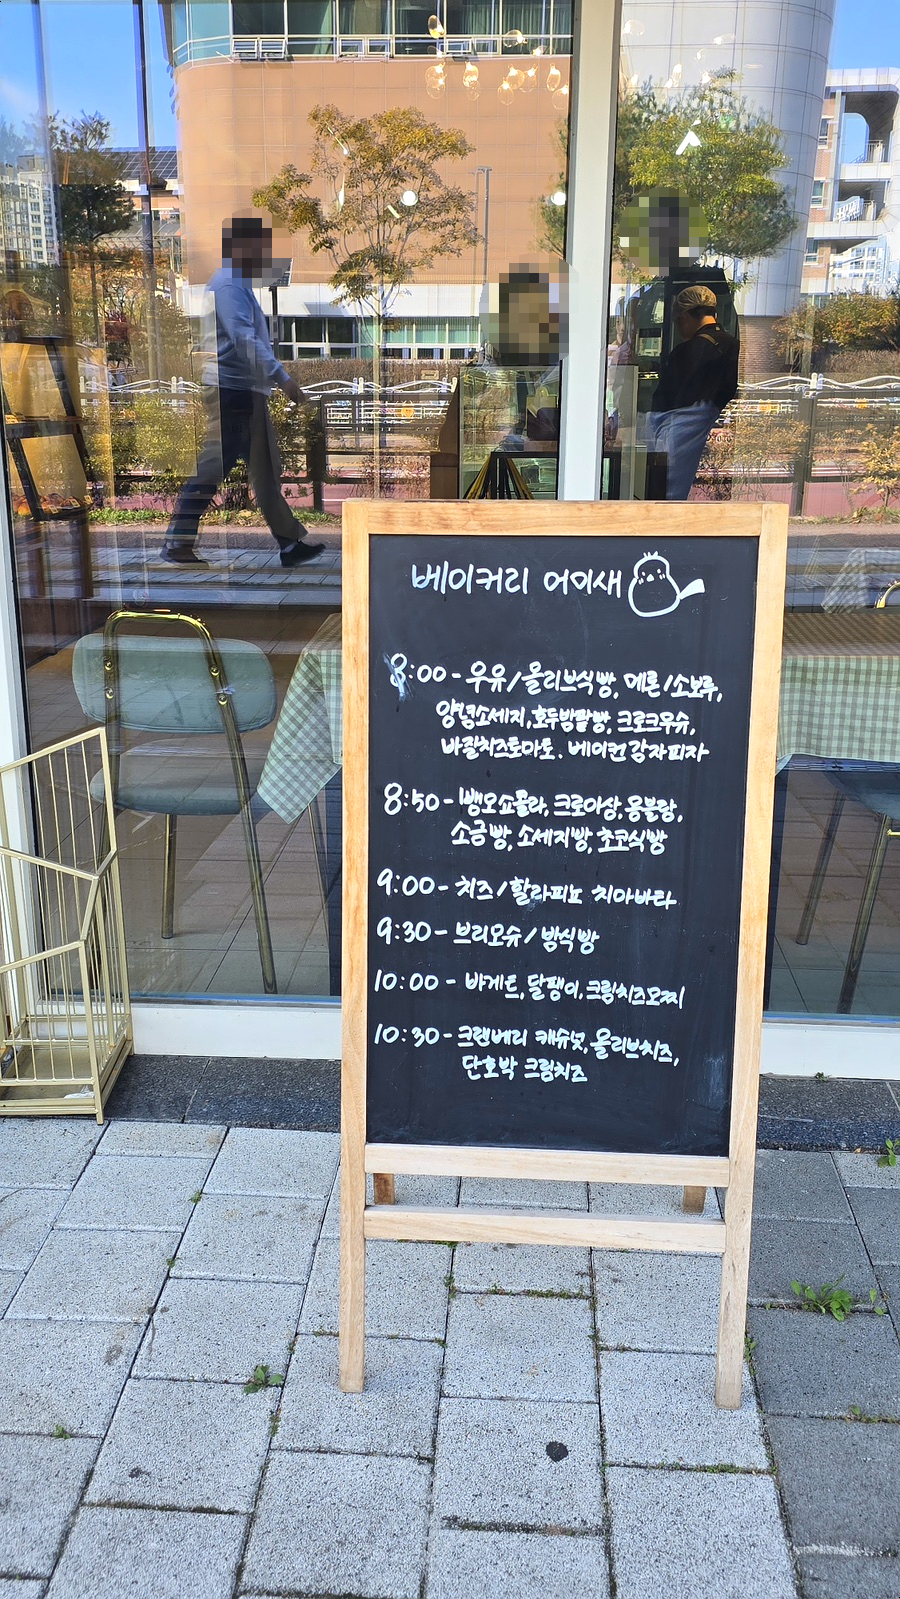 베이커리 어미새
8:00 - 우유/올리브식빵, 메론/소보루,
양념소세지, 호두밤팥빵, 크로크무슈,
바질치즈토마토, 베이컨감자피자
8:50 - 뺑오쇼콜라, 크로아상, 몽블랑,
소금빵, 소세지빵, 초코식빵
9:00 - 치즈/할라피뇨 치아바타
9:30 - 브리오슈/밤식빵
10:00 - 바게트, 달팽이, 크림치즈모찌
10:30 - 크랜베리 캐슈넛, 올리브치즈,
단호박 크림치즈